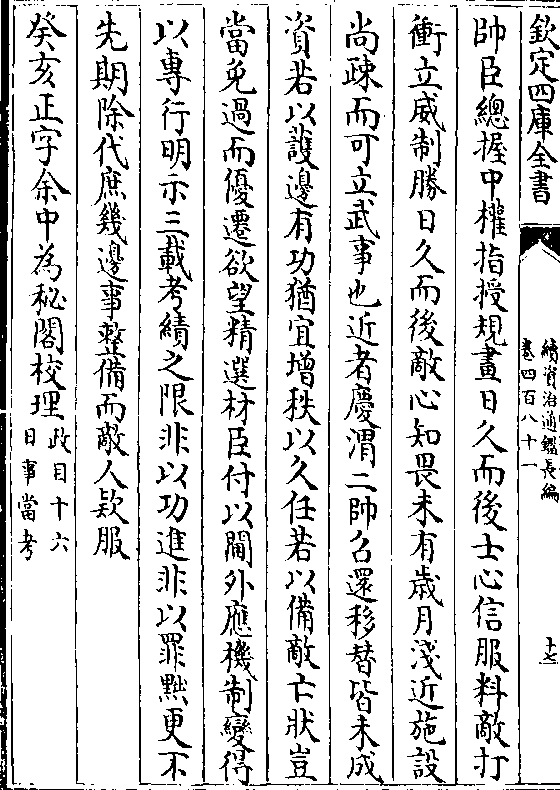 欽定四庫全書
續資治通鑑長編
卷四百八十一
十七
帥臣總握中權指授規畫日久而後士心信服料敵打
衝立威制勝日久而後敵心知畏未有歳月淺近施設
尚疎而可立武事也近者慶渭二帥召還移替皆未成
資若以䕶邊有功猶宜增秩以久任若以備敵亡狀豈
當免過而優遷欲望精選材臣付以閫外應機制變得
以專行明示三載考績之限非以功進非以罪黜更不
先期除代庶幾邊事整備而敵人欵服
癸亥正字余中為秘閣校理
政目十六
日事當考